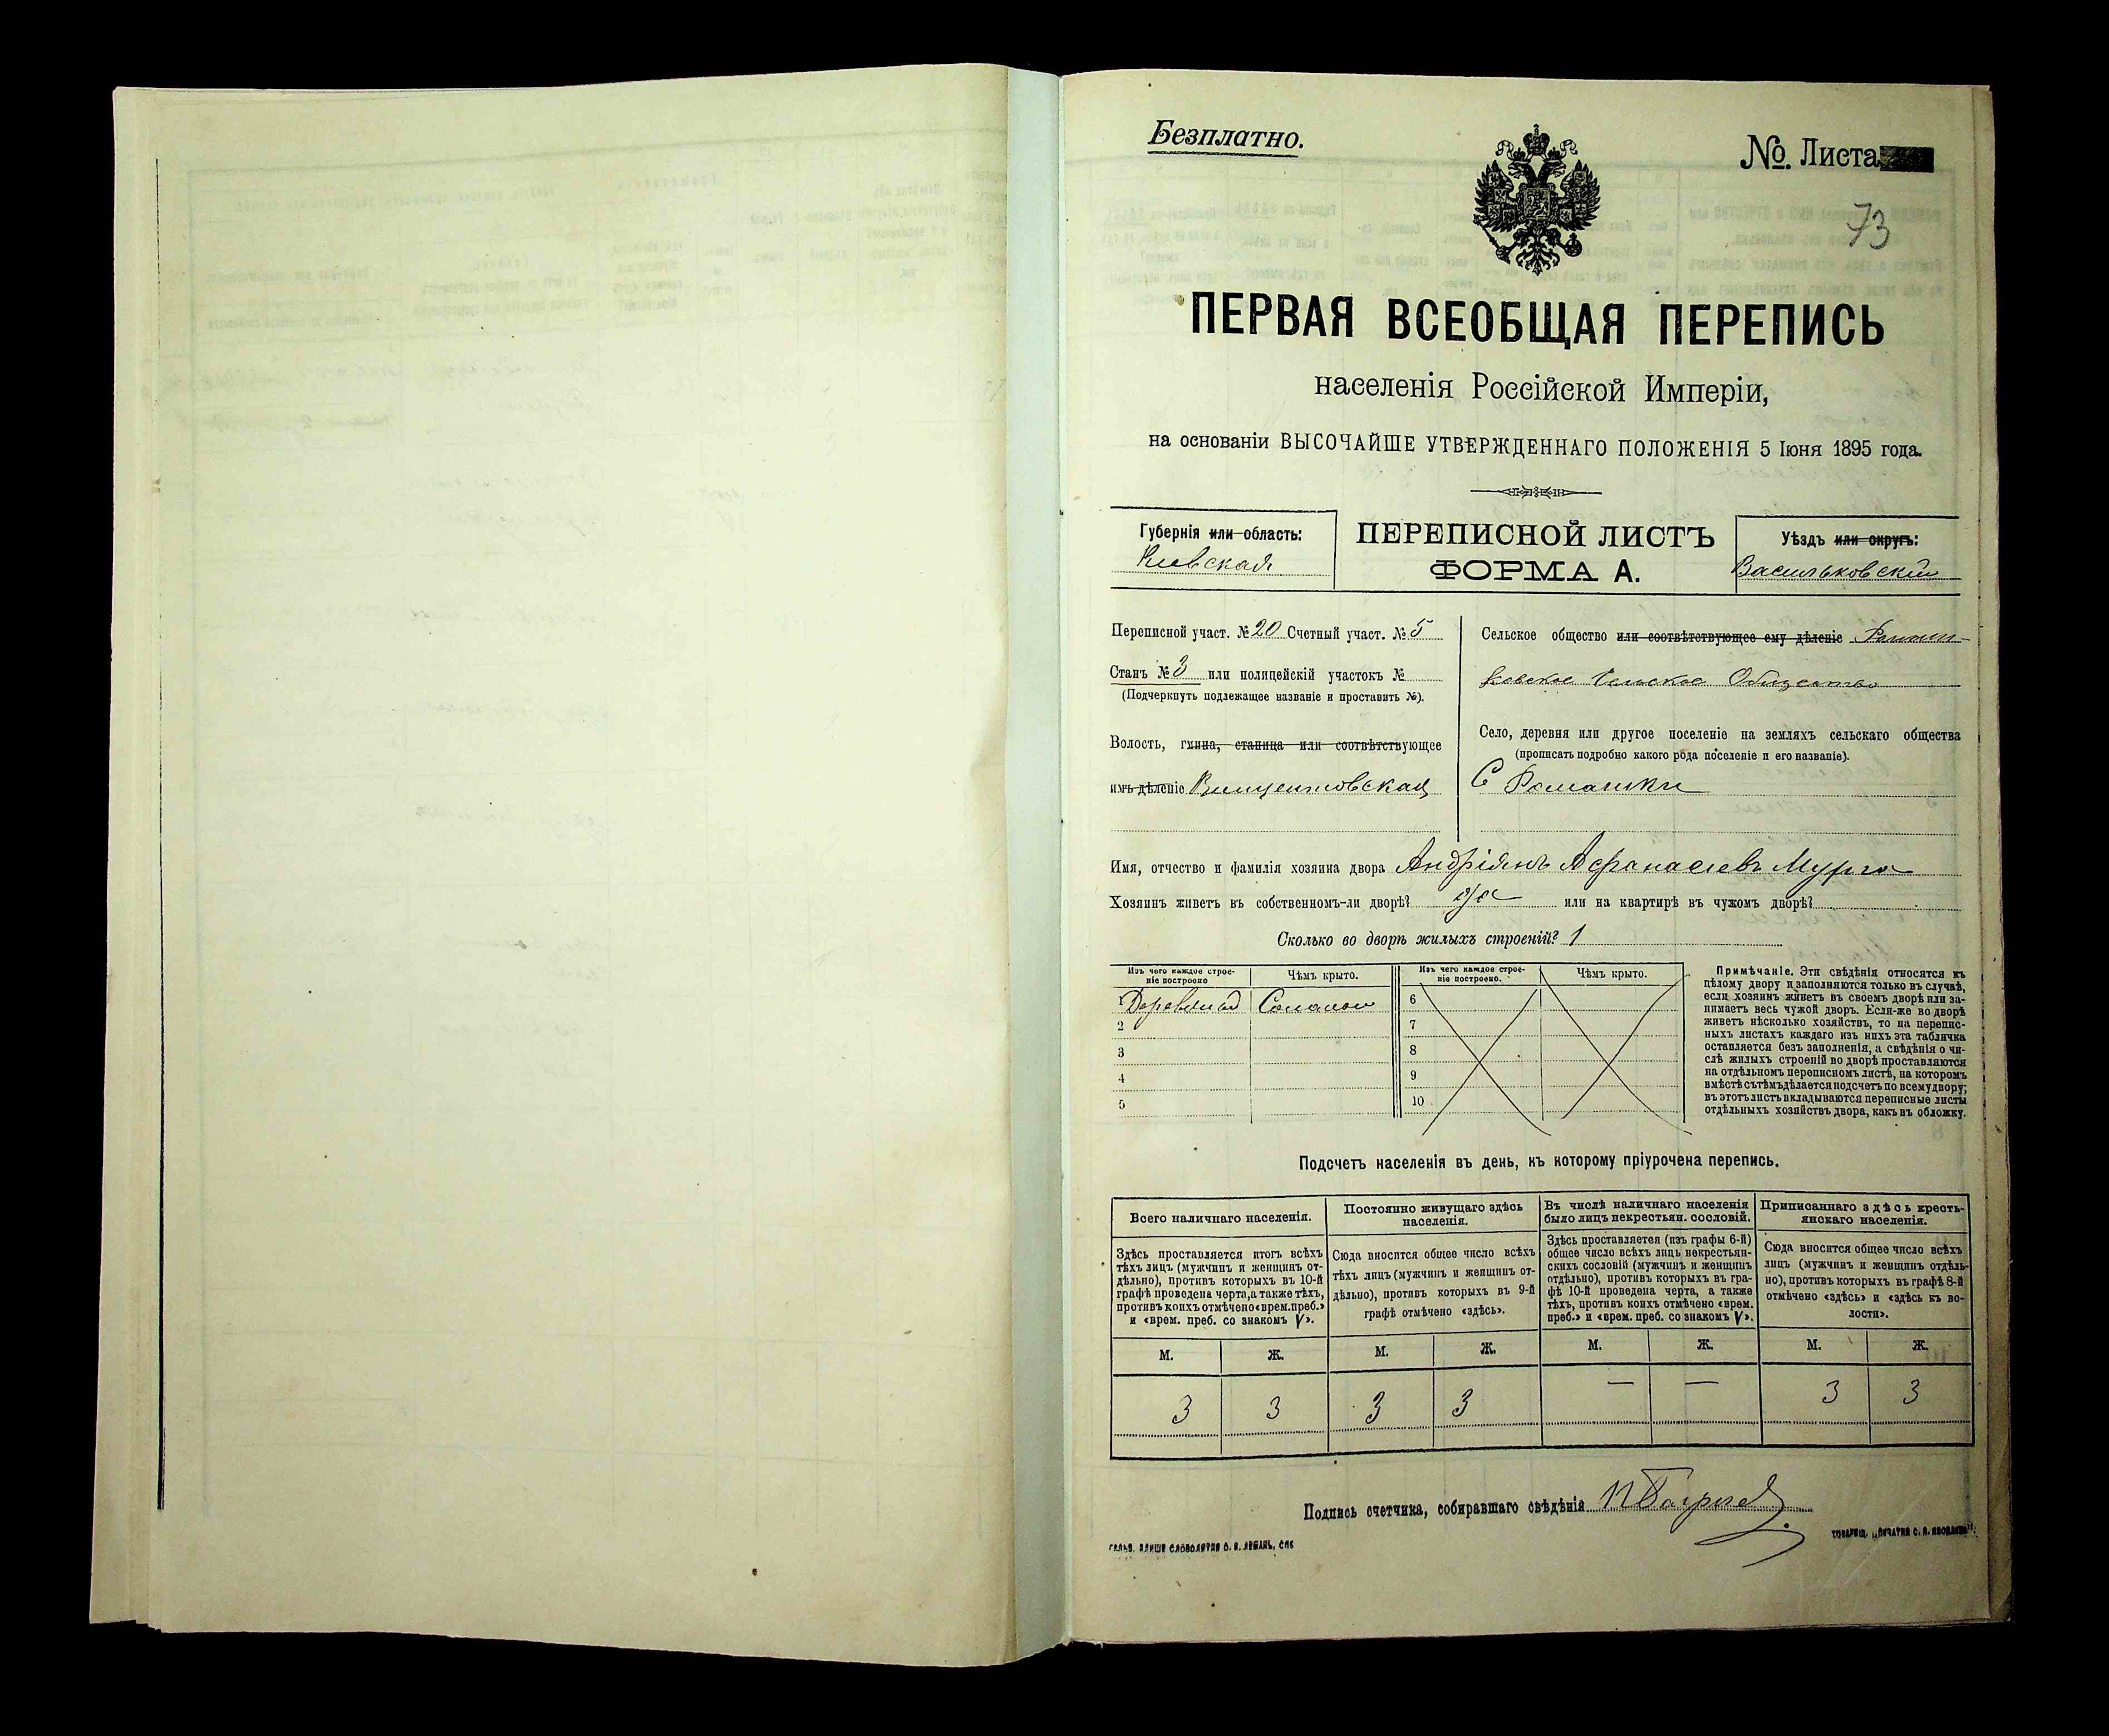 Безплатно.
№. Листа
73
ПЕРВАЯ ВСЕОБЩАЯ ПЕРЕПИСЬ
населенія Россійской Имперіи,
на основаніи ВЫСОЧАЙШЕ УТВЕРЖДЕННАГО ПОЛОЖЕНІЯ 5 Іюня 1895 года.
Губернія или область:
Кіевская
ПЕРЕПИСНОЙ ЛИСТЪ
ФОРМА А.
Уѣздъ или округъ:
Васильковскій
Переписной участ. № 20 Счетный участ. № 5
Станъ № 3 или полицейскій участокъ №
(Подчеркнуть подлежащее названіе и проставить №).
Волость, гмина, станица или соотвѣтствующее
имъ дѣленіе Винцентовская
Сельское общество или соотвѣтствующее ему дѣленіе Ромаш-
ковское Сельское Общество
Село, деревня или другое поселеніе на земляхъ сельскаго общества
(прописать подробно какого рода поселеніе и его названіе).
С Ромашки
Имя, отчество и фамилія хозяина двора Андріянъ Афанасіевъ Мурга
Хозяинъ живетъ въ собственномъ-ли дворѣ? да или на квартирѣ въ чужомъ дворѣ?
Сколько во дворѣ жилыхъ строеній? 1
Изъ чего каждое строе-
ніе построено
Чѣмъ крыто.
Изъ чего каждое строе-
ніе построено.
Чѣмъ крыто.
1 Соломою
2
3
4
5
6
7
8
9
10
Примѣчаніе. Эти свѣдѣнія относятся къ
цѣлому двору и заполняются только въ случаѣ,
если хозяинъ живетъ въ своемъ дворѣ или за-
нимаетъ весь чужой дворъ. Если-же во дворѣ
живетъ нѣсколько хозяйствъ, то на перепис-
ныхъ листахъ каждаго изъ нихъ эта табличка
оставляется безъ заполненія, а свѣдѣнія о чи-
слѣ жилыхъ строеній во дворѣ проставляются
на отдѣльномъ переписномъ листѣ, на которомъ
вмѣстѣ съ тѣмъ дѣлается подсчетъ по всему двору;
въ этотъ листъ вкладываются переписные листы
отдѣльныхъ хозяйствъ двора, какъ въ обложку.
Подсчетъ населенія въ день, къ которому пріурочена перепись.
Всего наличнаго населенія.
Здѣсь проставляется итогъ всѣхъ
тѣхъ лицъ (мужчинъ и женщинъ от-
дѣльно), противъ которыхъ въ 10-й
графѣ проведена черта, а также тѣхъ,
противъ коихъ отмѣчено «врем. преб.»
и «врем. преб. со знакомъ V».
Постоянно живущаго здѣсь
населенія.
Сюда вносится общее число всѣхъ
тѣхъ лицъ (мужчинъ и женщинъ от-
дѣльно), противъ которыхъ въ 9-й
графѣ отмѣчено «здѣсь».
Въ числѣ наличнаго населенія
было лицъ некрестьян. сословій.
Здѣсь проставляется (изъ графы 6-й)
общее число всѣхъ лицъ некрестьян-
скихъ сословій (мужчинъ и женщинъ
отдѣльно), противъ которыхъ въ гра-
фѣ 10-й проведена черта, а также
тѣхъ, противъ коихъ отмѣчено «врем.
преб.» и «врем. преб. со знакомъ V».
Приписаннаго здѣсь кресть-
янскаго населенія.
Сюда вносится общее число всѣхъ
лицъ (мужчинъ и женщинъ отдѣль-
но), противъ которыхъ въ графѣ 8-й
отмѣчено «здѣсь» и «здѣсь къ во-
лости».
М. Ж. М. Ж. М. Ж. М. Ж.
3 3 3 3 — — 3 3
Подпись счетчика, собиравшаго свѣдѣнія